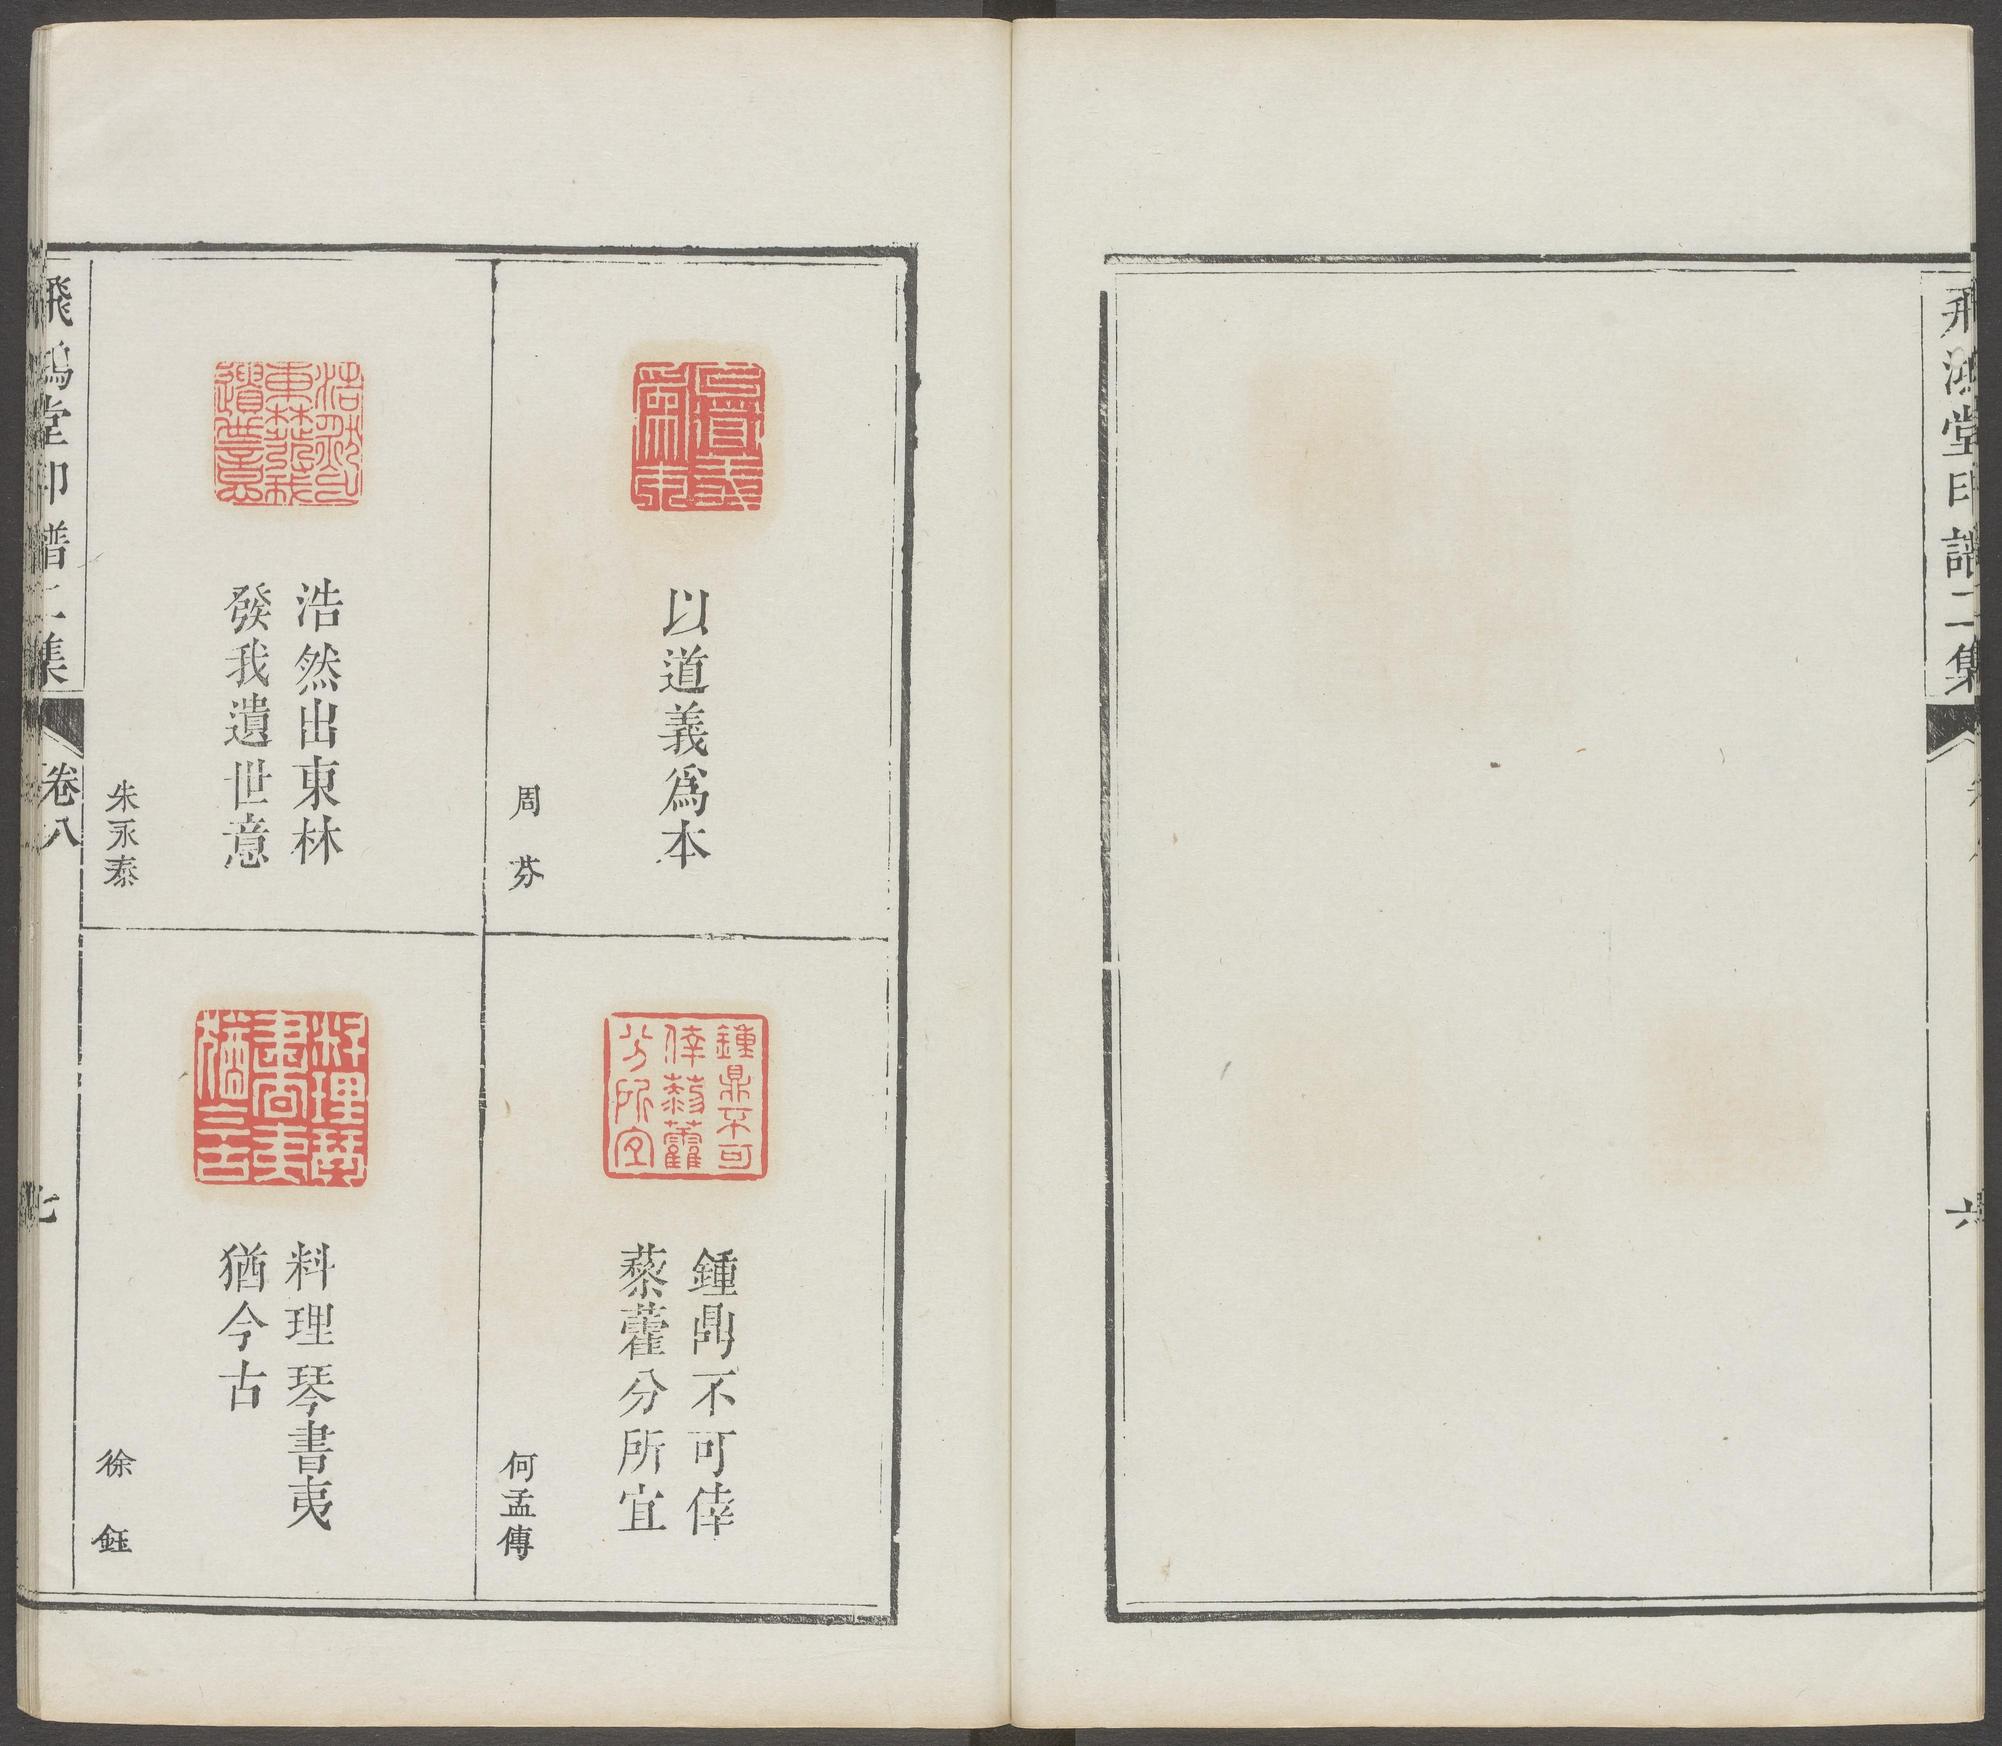 飛鴻堂印譜二集
六
以道義爲本
周芬
鍾鼎不可倖
藜藿分所宜
何孟傳
浩然出東林
發我遺世意
朱永泰
料理琴書夷
猶今古
徐鈺
飛鴻堂印譜二集
卷八
七